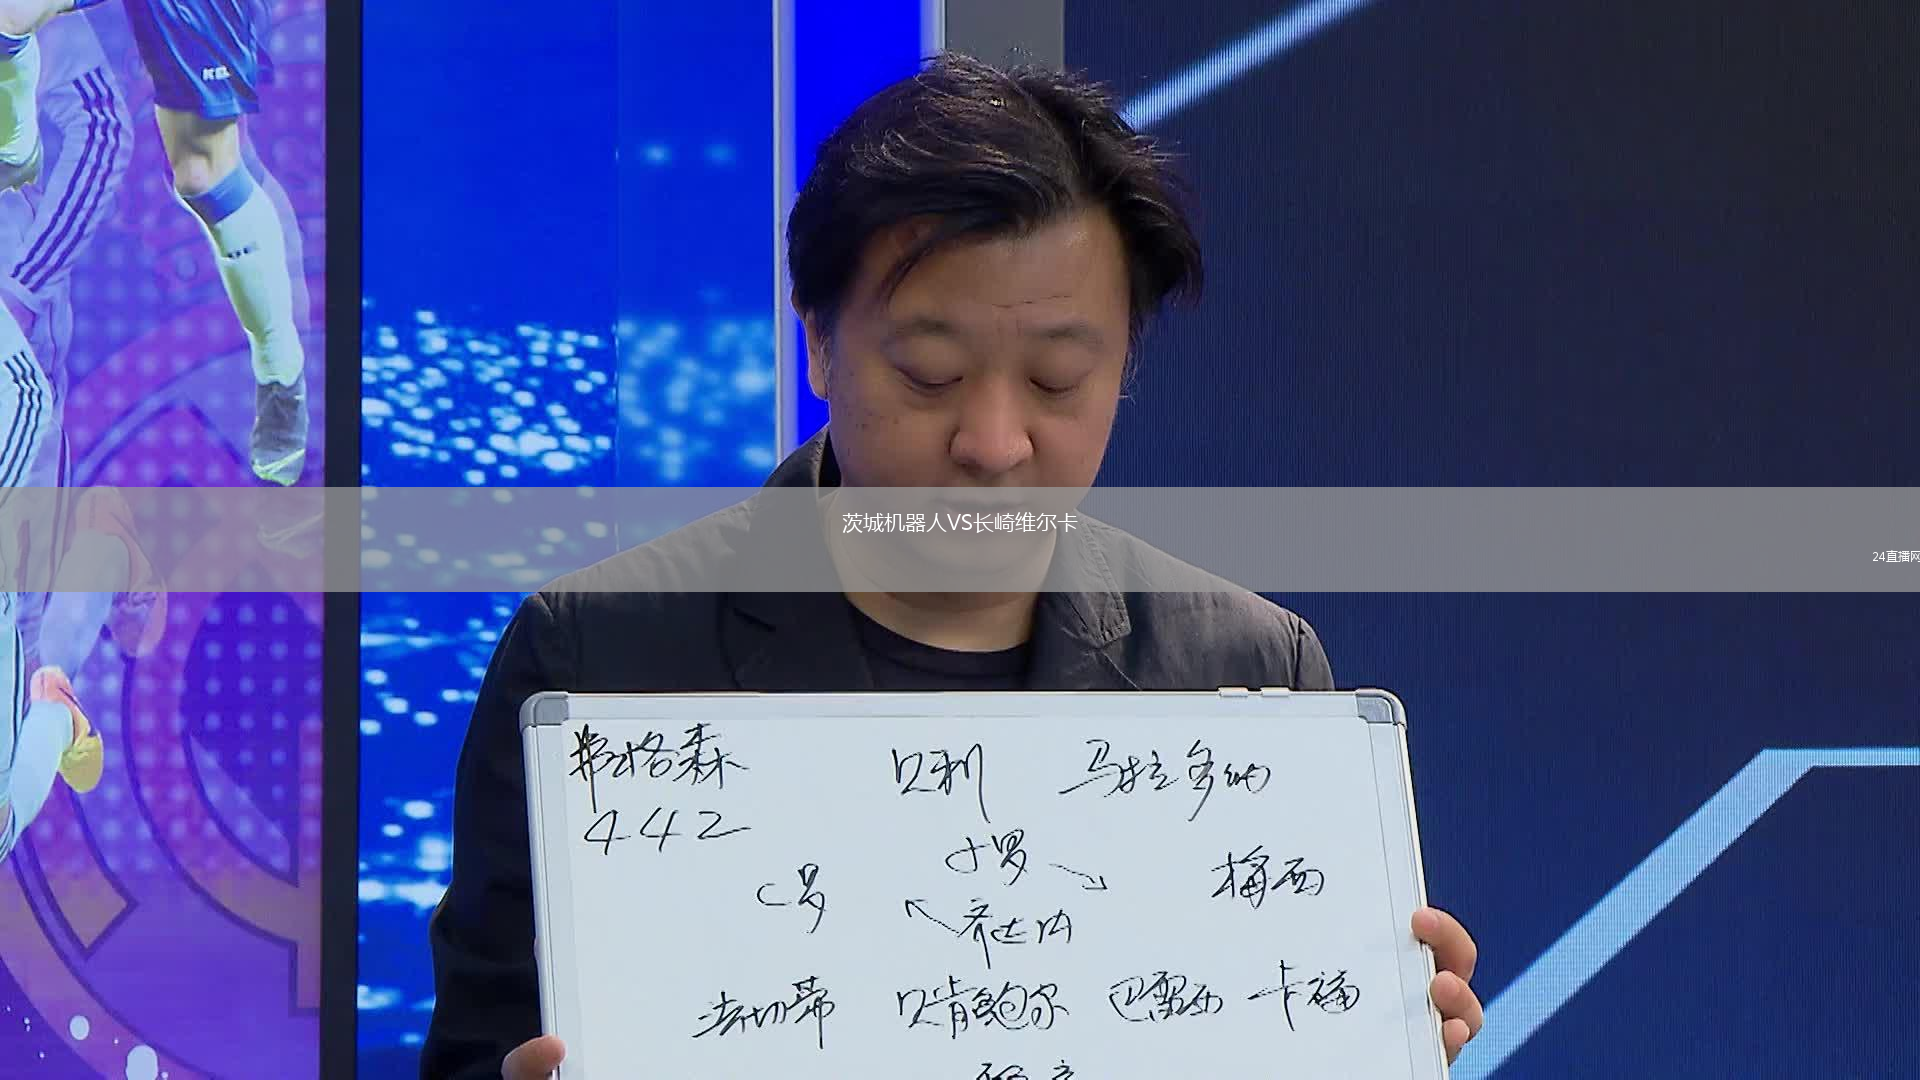 茨城机器人VS长崎维尔卡
24直播网
弗格森 贝利 马拉多纳
442
小罗
C罗 梅西
齐达内
法切蒂 贝肯鲍尔 巴雷西 卡福